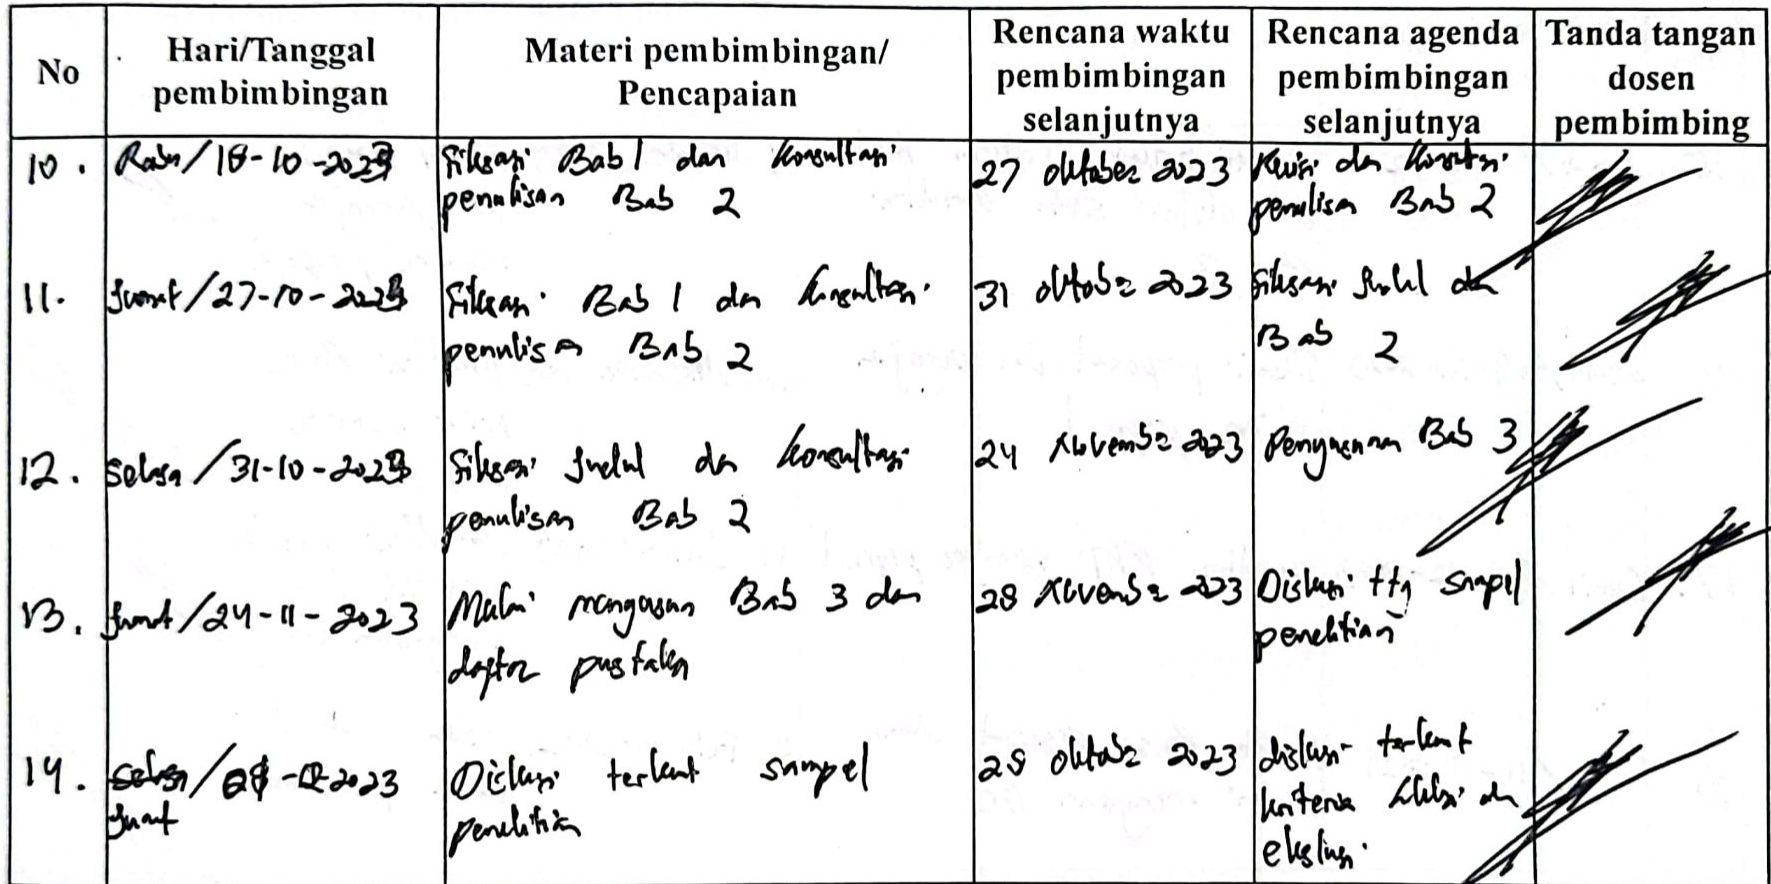 No
Hari/Tanggal
pembimbingan
Materi pembimbingan/
Pencapaian
Rencana waktu
pembimbingan
selanjutnya
Rencana agenda
pembimbingan
selanjutnya
Tanda tangan
dosen
pembimbing
10. Rabu/18-10-2023
Fiksasi Bab 1 dan Konsultasi
penulisan Bab 2
27 Oktober 2023
Revisi dan Konsultasi
penulisan Bab 2
11. Jumat/27-10-2023
Fiksasi Bab 1 dan Konsultasi
penulisan Bab 2
31 Oktober 2023
Fiksasi Judul dan
Bab 2
12. Selasa/31-10-2023
Fiksasi Judul dan Konsultasi
penulisan Bab 2
24 November 2023
Penyusunan Bab 3
13. Jumat/24-11-2023
Mulai Bab 3 dan
daftar pustaka
28 November 2023
Diskusi ttg sampel
penelitian
14. Selasa/ 2023
Jumat
Diskusi terkait sampel
penelitian
Oktober 2023
diskusi terkait
kriteria inklusi dan
eksklusi.